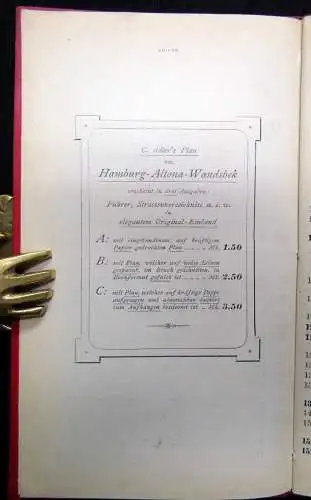 C. Adler's Plan
von
Hamburg-Altona-Wandsbek
erscheint in drei Ausgaben:
Führer, Strassenverzeichniss u. s. w.
in
elegantem Original-Einband
A: mit eingebundenem, auf kräftigem
Papier gedrucktem Plan Mk. 1.50
B: mit Plan, welcher auf
gespannt, im Bruch geschnitten, in
Buchformat gefalzt ist Mk. 2.50
C: mit Plan, welcher auf kräftige Pappe
aufgezogen und
zum Aufhängen bestimmt ist Mk. 3.50